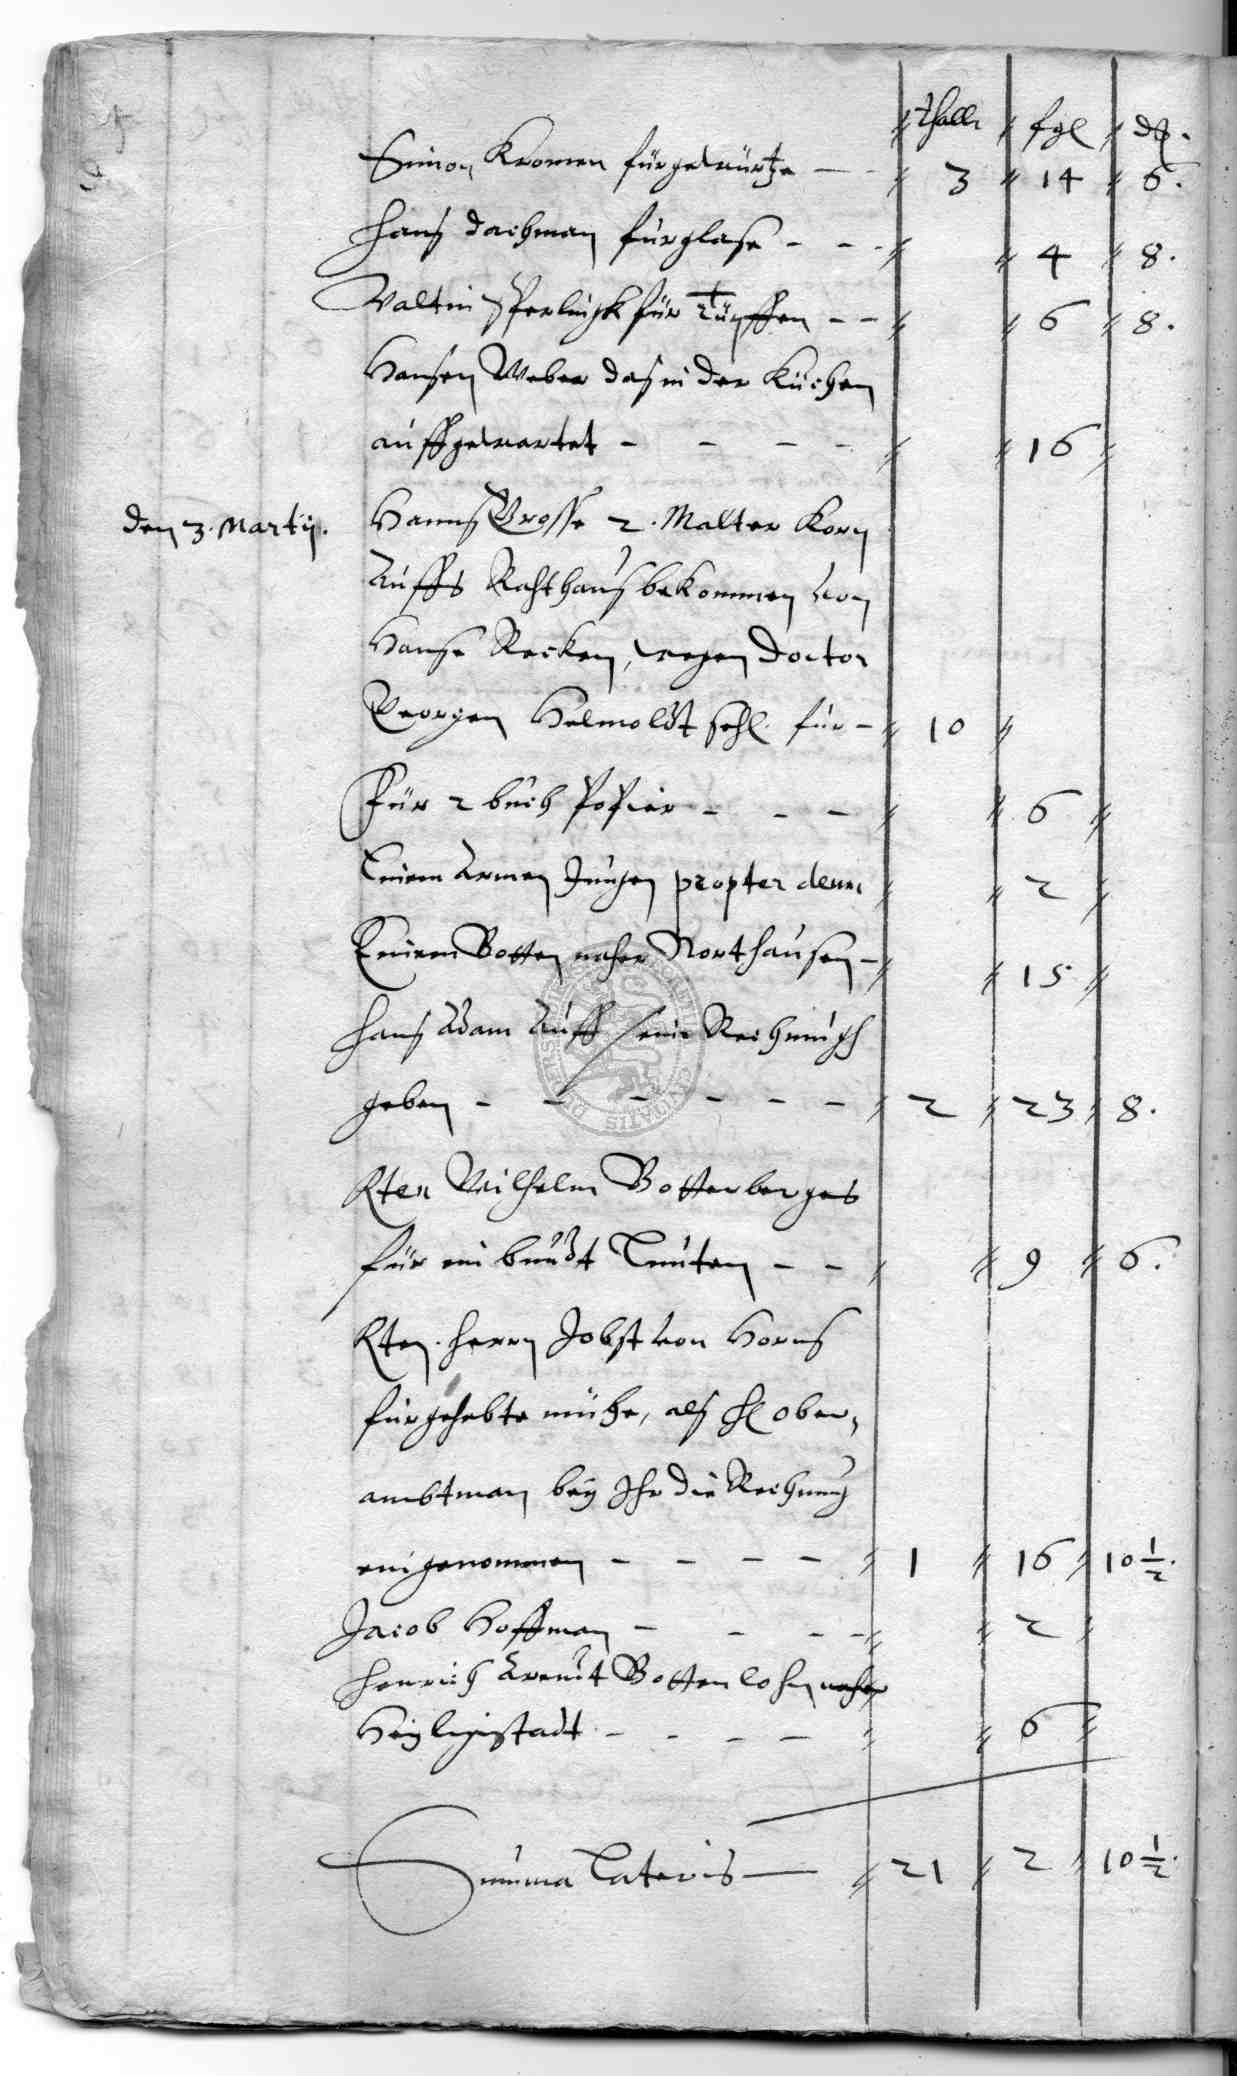 thall fgl d
Simon Kromen für gewürtze — 3 14 6.
Hans Dachman für glase - - 4 8.
Valtin Sperlingk für - - 6 8.
Hansen Weber das in der Küchen
auffgewartet - - - - 16
den 3. Martij. Hanns Grosse 2. Malter Korn
Auffs Rahthaus bekommen von
Hanse Recken, wegen Doctor
Georgen Helmoldt sehl. für - 10
Für 2 buch Papier - - - 6
Einem Armen Jungen propter deum 2
Einem Botten naher Northausen - 15
Hans Adam Auff seine Rechnungh
geben - - - - - - 2 23 8.
Rten Wilhelm Botterberges
für ein bundt - - 9 6.
Rten. Herrn Jobst von Horns
für gehabte mühe, als H Ober,
ambtman bey Ihr die Rechnung
eingenommen - - - - 1 16 10 1/2.
Jacob Hoffman - - - - 2
Henrich Arendt Botten lohn naher
Heyligistadt - - - - 6
Summa Lateris — 21 2 10 1/2.